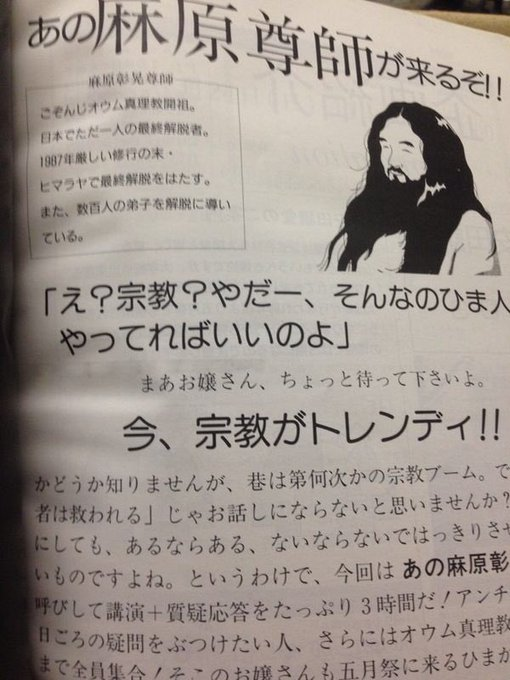 あの麻原尊師が来るぞ!!
麻原彰晃尊師
ごぞんじオウム真理教開祖。
日本でただ一人の最終解脱者。
1987年厳しい修行の末・
ヒマラヤで最終解脱をはたす。
また、数百人の弟子を解脱に導い
ている。
「え?宗教?やだー、そんなのひま人
やってればいいのよ」
まあお嬢さん、ちょっと待って下さいよ。
今、宗教がトレンディ!!
かどうか知りませんが、巷は第何次かの宗教ブーム。で
者は救われる」じゃお話しにならないと思いませんか?
にしても、あるならある、ないならないではっきりさせ
いものですよね。というわけで、今回は あの麻原彰
呼びして講演+質疑応答をたっぷり3時間だ!アンチ
日ごろの疑問をぶつけたい人、さらにはオウム真理教
まで全員集合!そこのお嬢さんも五月祭に来るひまが